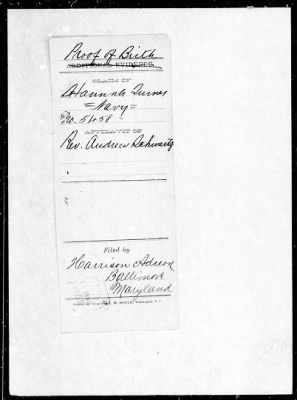 Proof of Birth
ADDITIONAL EVIDENCE.
CLAIM OF
Hannah Turner
=Navy=
No. 5458
AFFIDAVIT OF
Rev. Andrew Schwartz
Filed by
Harrison Adreon
Baltimore
Maryland